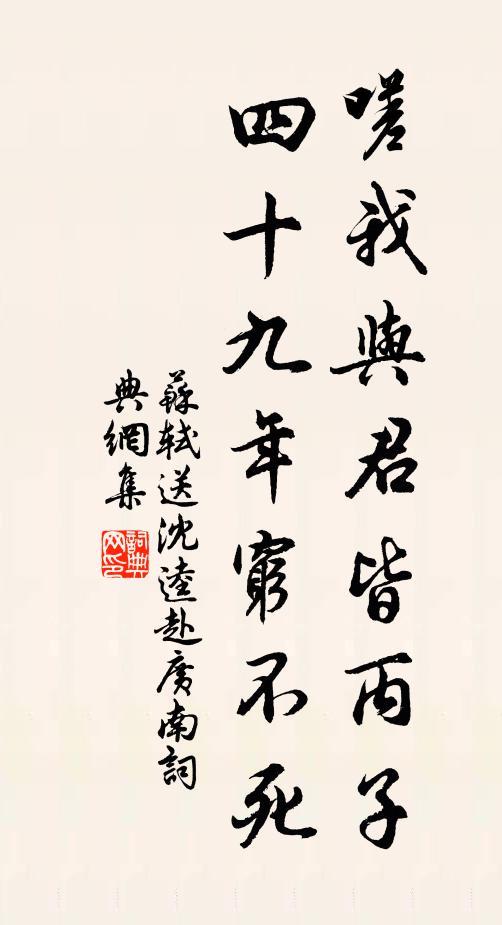 嗟我與君皆丙子
四十九年窮不死
蘇軾送沈逵赴廣南詞
典網集
詞典網印